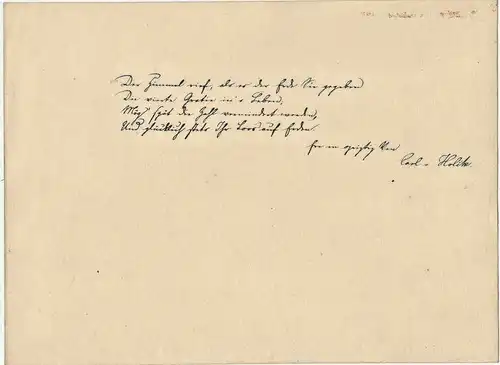 Der Himmel rief, als er der Erde Sie gegeben
Die vierte Gratie in's Leben,
Mög' spät die Zahl vermindert werden,
Und glücklich stets Ihr Loos auf Erden.
Carl v Holtei